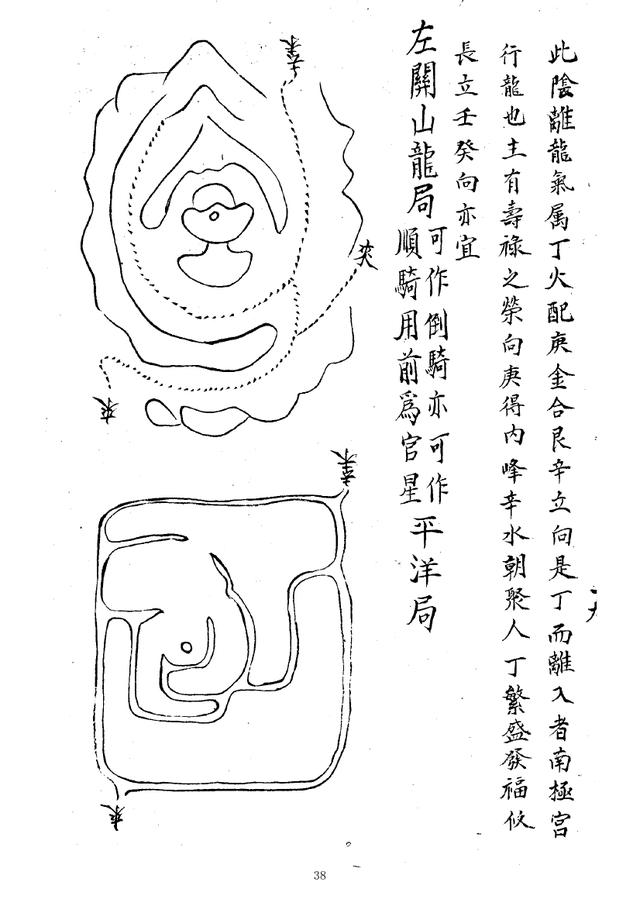 此陰離龍氣属丁火配庚金合艮辛立向是丁而離入者南極宫
行龍也主有壽祿之榮向庚得内峰辛水朝聚人丁繁盛發福攸
長立壬癸向亦宜
左關山龍局
可作倒騎亦可作
順騎用前爲官星
平洋局
來
夾
來
來
來
38